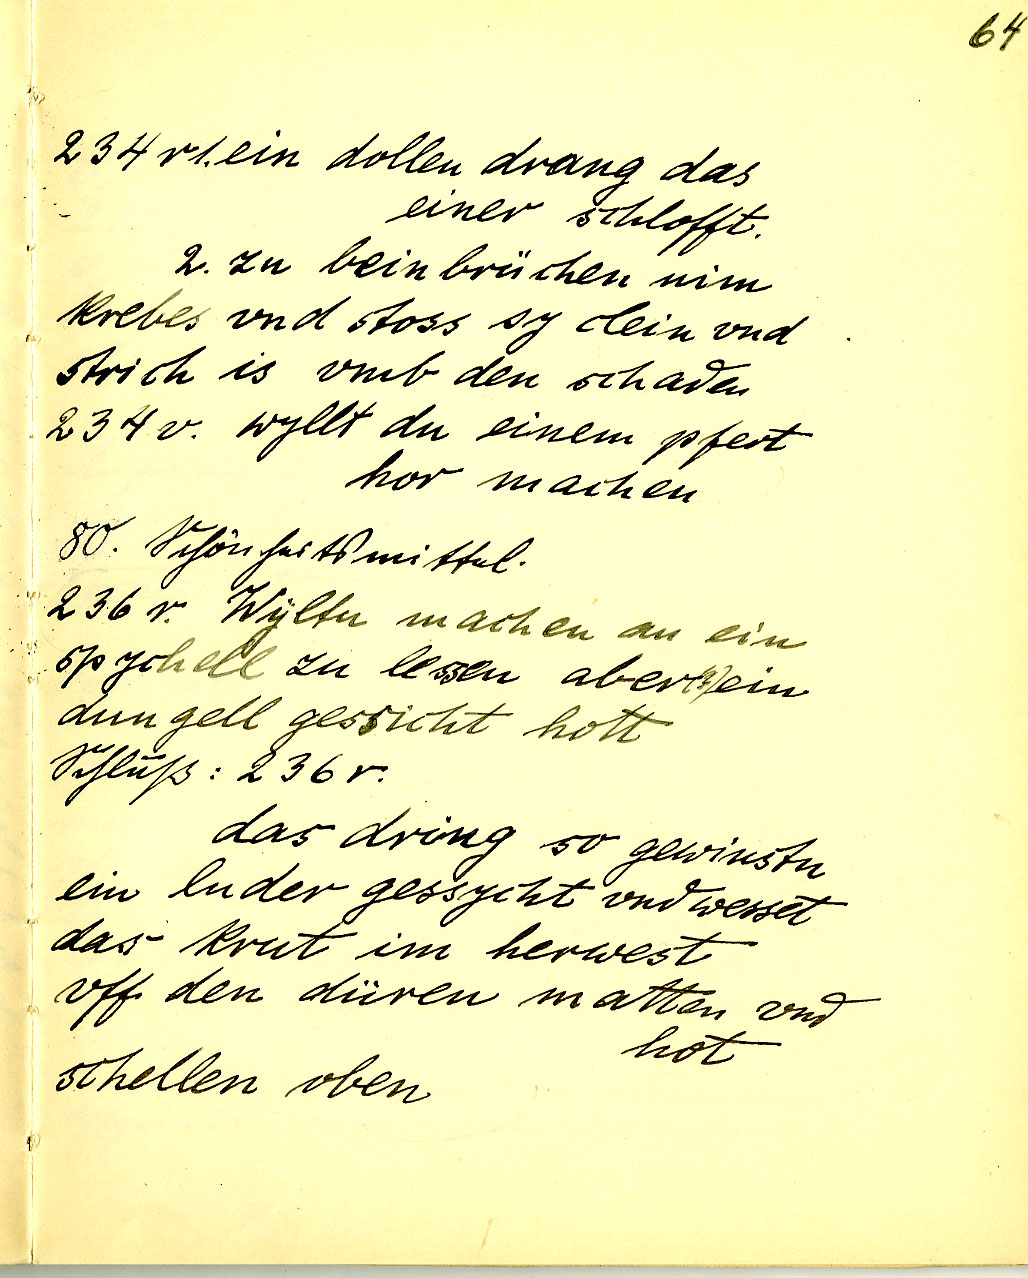 64
234 r 1. ein dollen drang das
einer schlofft.
2. zu beinbrüchen nim
krebes vnd stoss sy clein vnd
strich is vmb den schaden
234 v. wyllt du einem pfert
hor machen
80. Schönheitsmittel.
236 r. Wÿltu machen an ein
spychell zu lessen aber ein
dungell gessicht hott
Schluß: 236 r.
das dring so gewinstu
ein luder gessycht vnd wesset
das krut im herwest
vff den düren matten vnd
hot
schellen oben